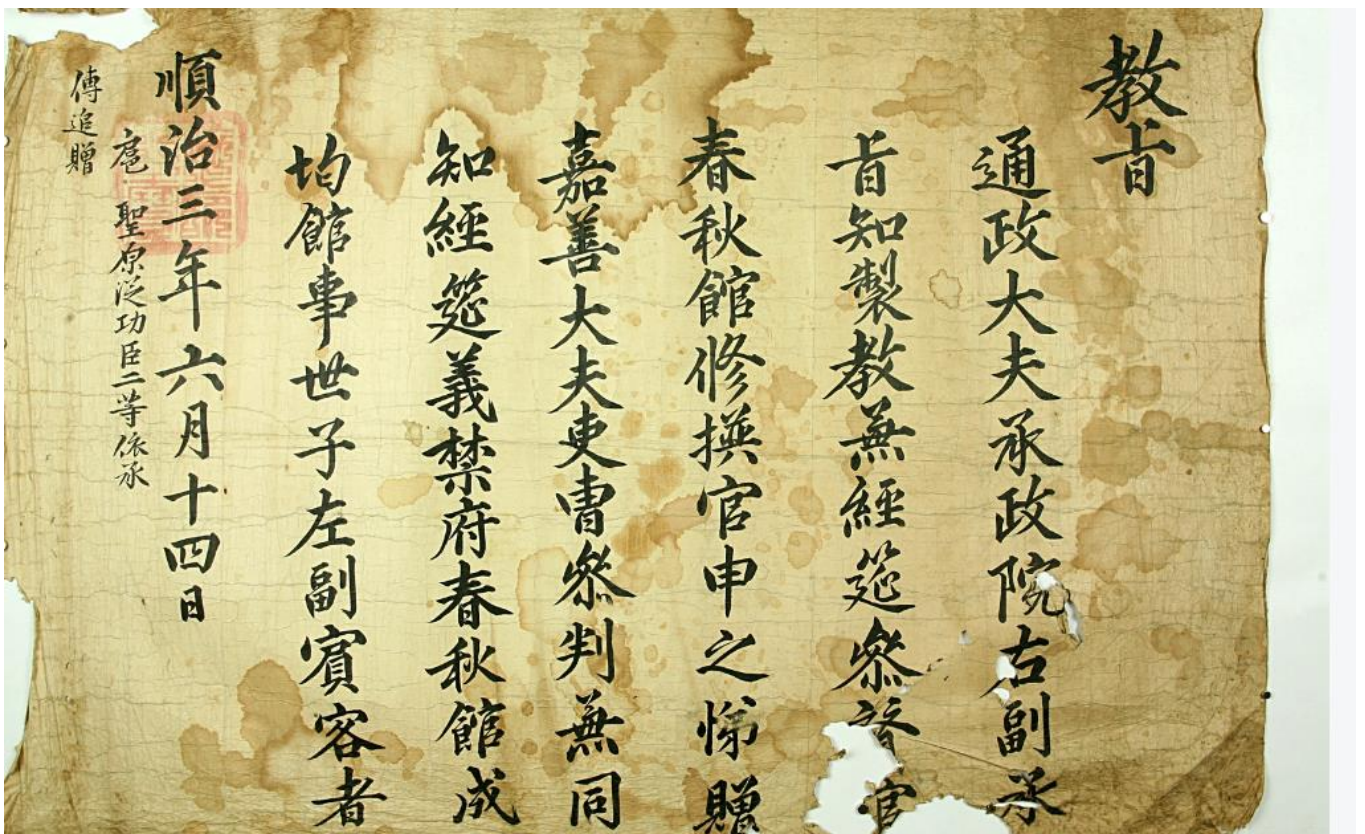 教旨
通政大夫承政院右副承
旨知製教兼經筵參贊官
春秋館修撰官申之悌贈
嘉善大夫吏曹參判兼同
知經筵義禁府春秋館成
均館事世子左副賓客者
順治三年六月十四日
扈 聖原從功臣二等依承
傳追贈